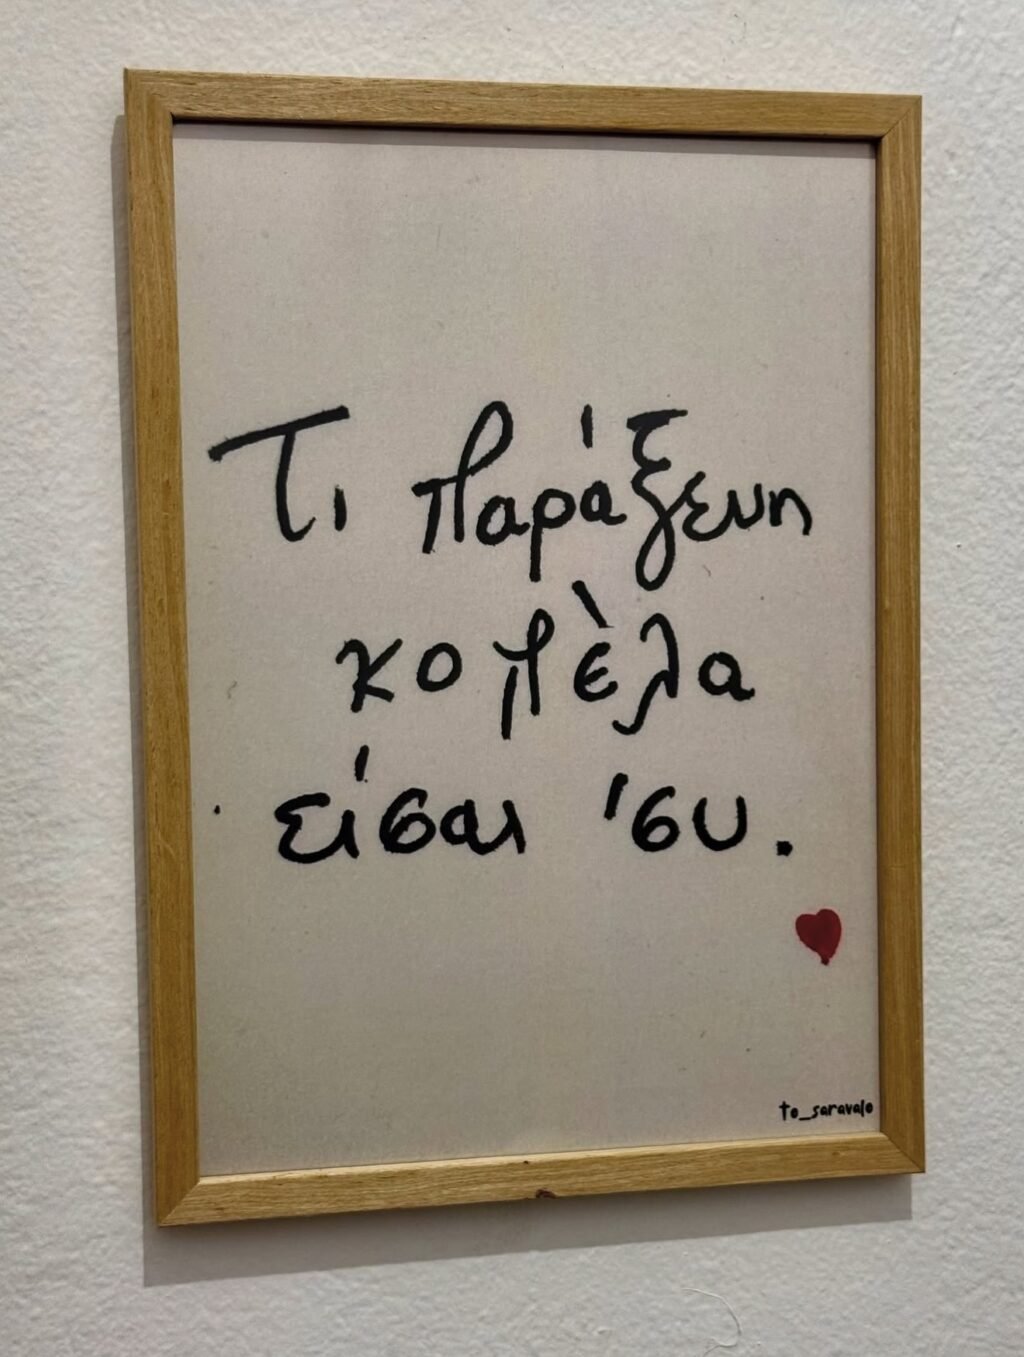 Τι παράξενη
κοπὲλα
είσαι 'συ.
to_saravalo